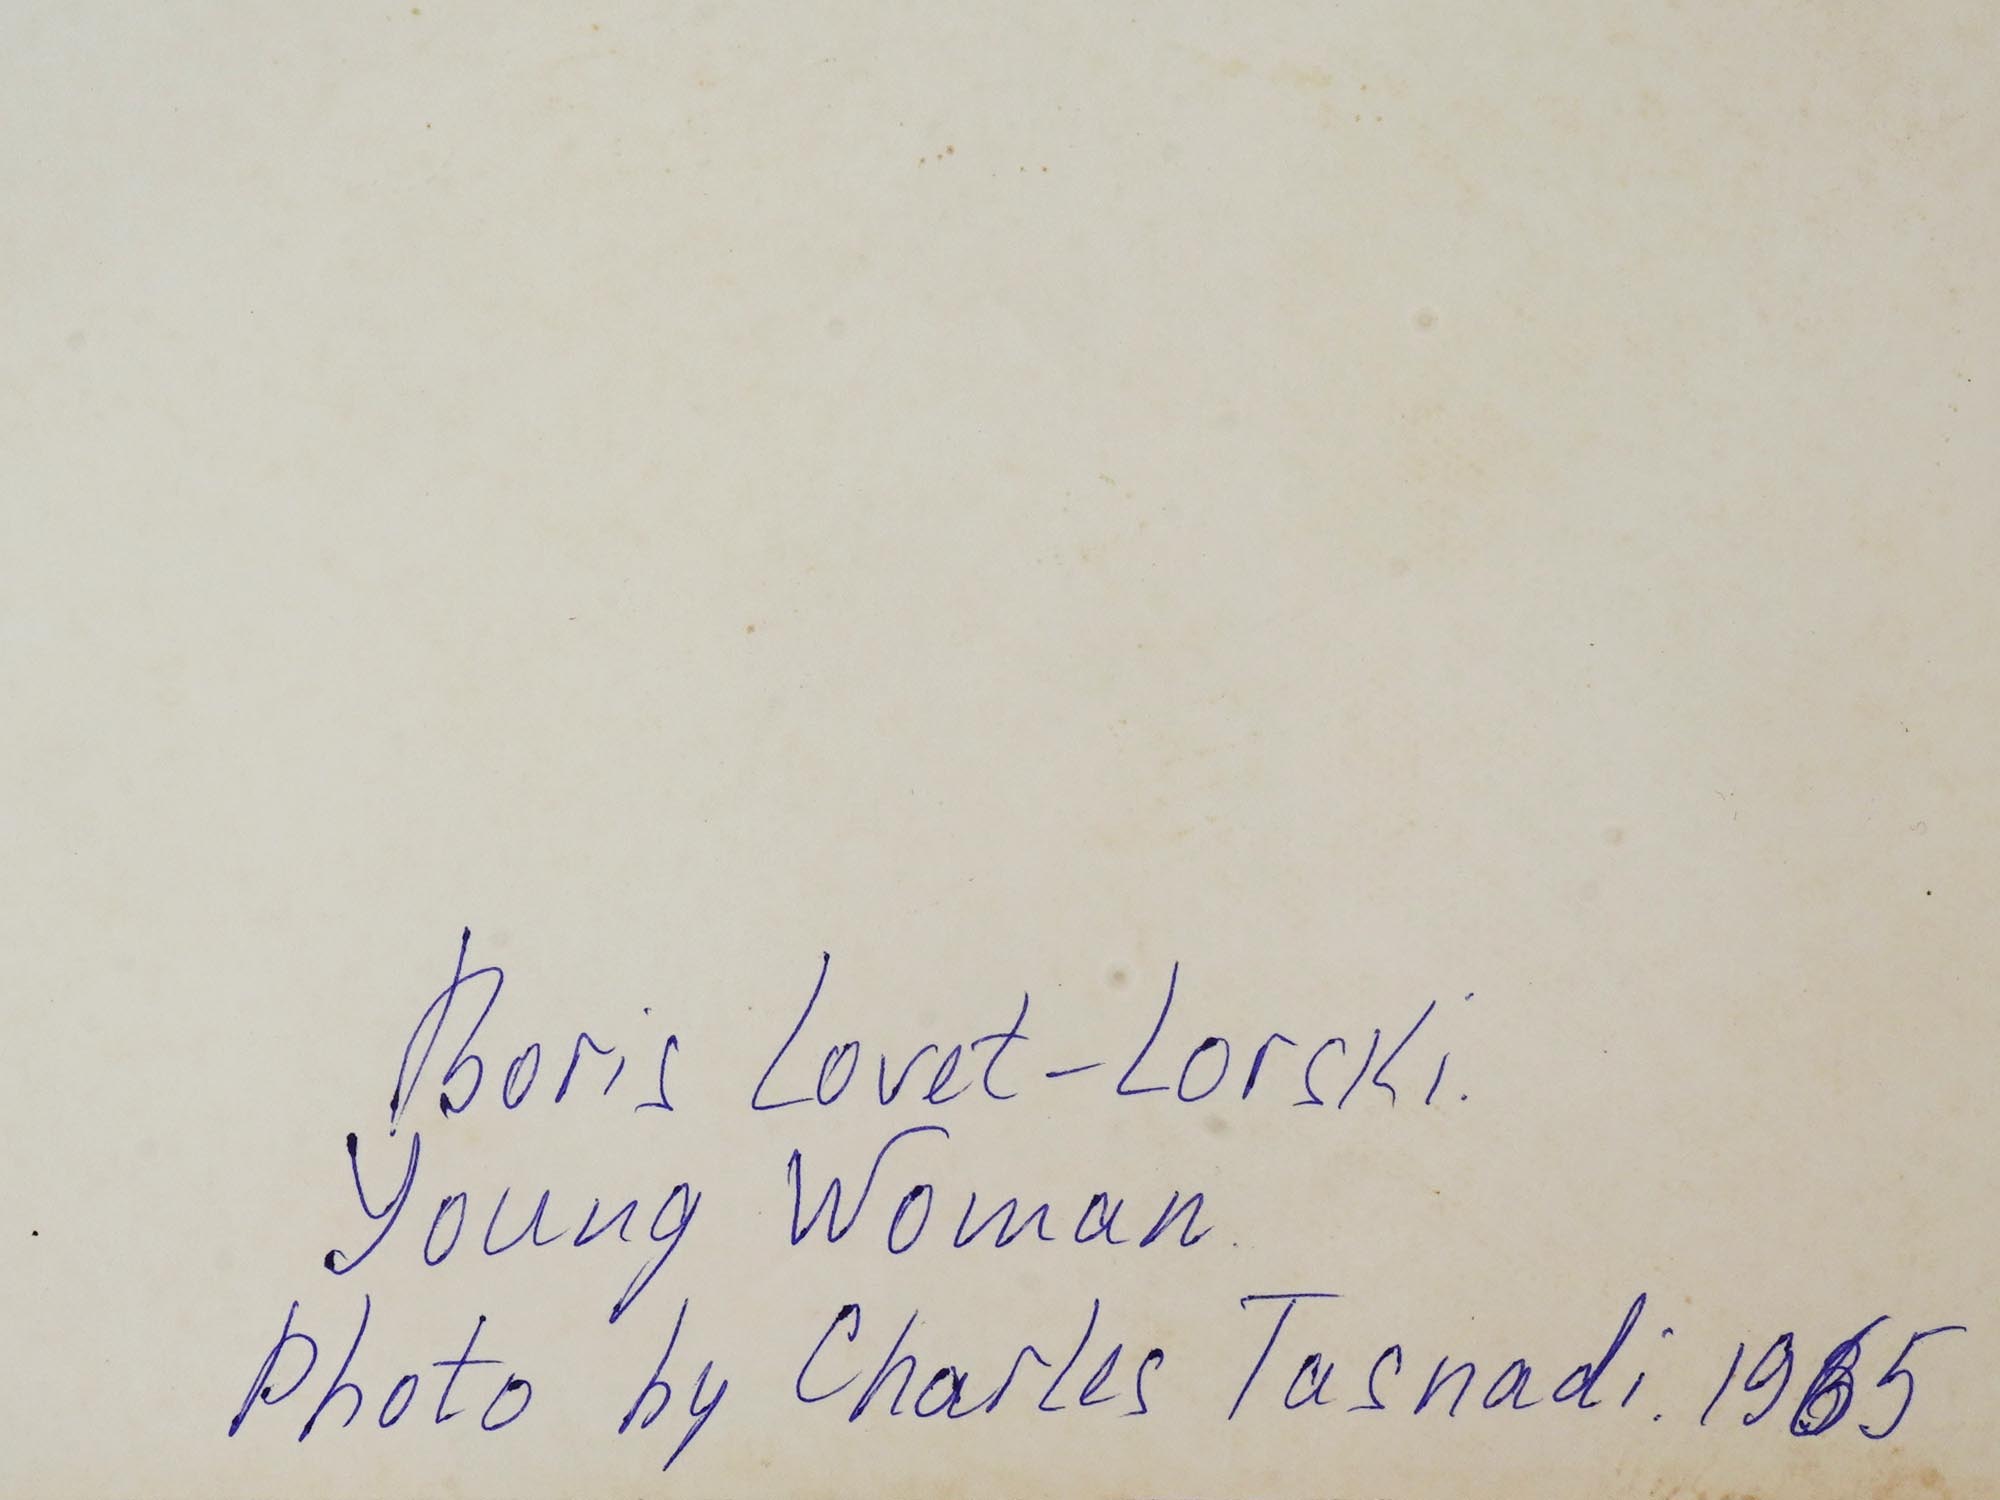 Boris Lovet-Lorski.
Young Woman.
Photo by Charles Tasnadi. 1965